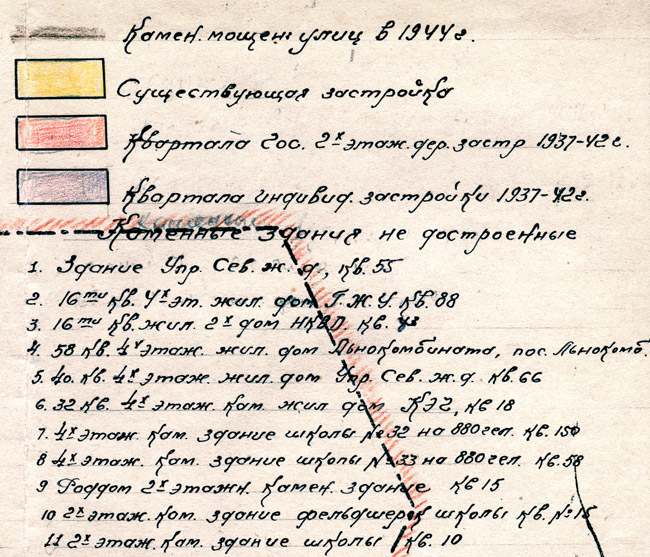 Камен. мощен. улиц в 1944 г.
Существующая застройка
Квартала гос. 2х этаж. дер. застр 1937-42 г.
Квартала индивид. застройки 1937-42г.
Каменные здания не достроенные
1. Здание Упр. Сев. ж. д., кв. 55
2. 16ти кв. 4х эт. жил. дом Г.Ж.У. кв. 88
3. 16ти кв. жил. 2х дом НКВД. кв.
4. 58 кв. 4х этаж. жил. дом Льнокомбината, пос. Льнокомб.
5. 40. кв. 4х этаж. жил. дом Упр. Сев. ж.д. кв. 66
6. 32 кв. 4х этаж. кам. жил дом КЭЧ, кв 18
7. 4х этаж. кам. здание школы № 32 на 880 чел. кв. 150
8 4х этаж. кам. здание школы № 33 на 880 чел. кв. 58
9 Роддом 2х этажн. камен. здание кв 15
10 2х этаж. кам. здание фельдшерск школы кв. № 15
11 2х этаж. кам. здание школы кв. 10